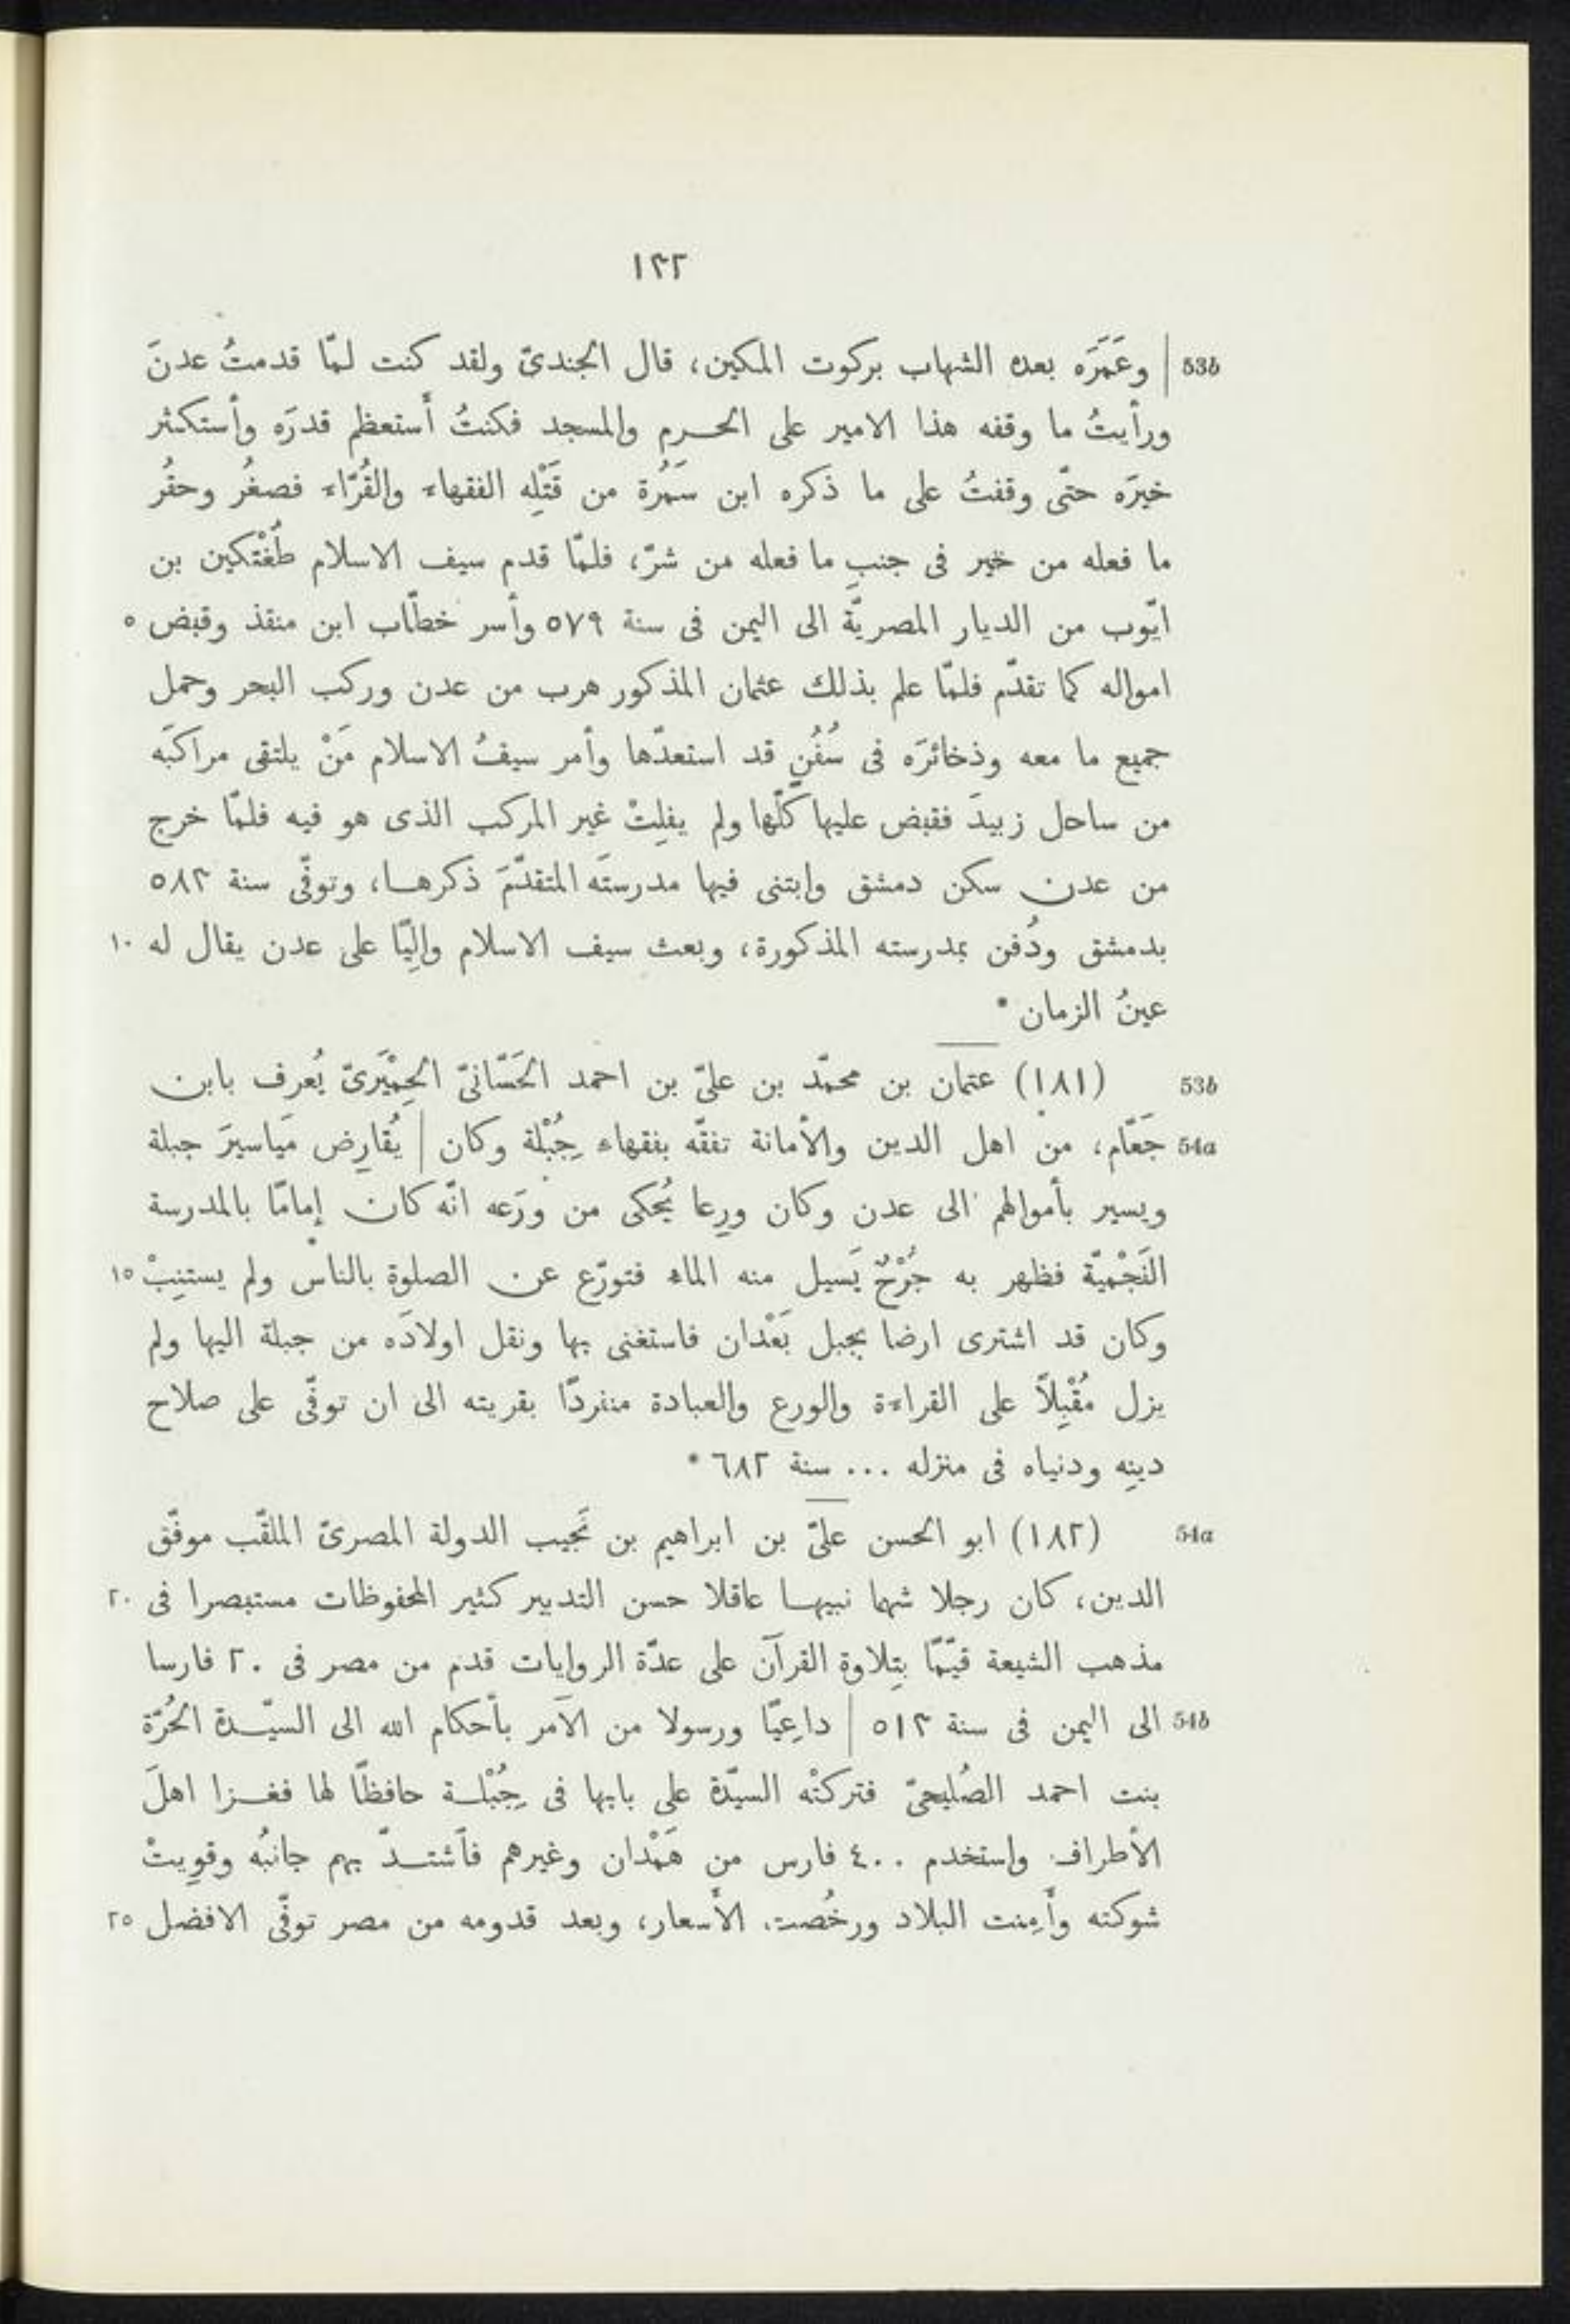 ١٣٢
53b | وعَمَرَه بعده الشهاب بركوت المكين، قال الجندىّ ولقد كنت لمّا قدمتُ عدنَ
ورأيتُ ما وقفه هذا الامير على الحرم والمسجد فكنتُ أَستعظم قدرَه وأستكثر
خيرَه حتّى وقفتُ على ما ذكره ابن سَمُرة من قَتْلِه الفقهاء والقُرّاء فصغُر وحقُر
ما فعله من خير فى جنبِ ما فعله من شرّ، فلمّا قدم سيف الاسلام طُغْتَكين بن
ايّوب من الديار المصريّة الى اليمن فى سنة ٥٧٩ وأسر خطّاب ابن منقذ وقبض ٥
امواله كما تقدّم فلمّا علم بذلك عثمان المذكور هرب من عدن وركب البحر وحمل
جميع ما معه وذخائرَه فى سُفُنٍ قد استعدّها وأمر سيفُ الاسلام مَنْ يلتقى مراكبَه
من ساحل زبيدَ فقبض عليها كلّها ولم يفلِتْ غير المركب الذى هو فيه فلمّا خرج
من عدن سكن دمشق وابتنى فيها مدرستَه المتقدّمَ ذكرها، وتوفّى سنة ٥٨٣
بدمشق ودُفن بمدرسته المذكورة، وبعث سيف الاسلام والِيًا على عدن يقال له ١٠
عينُ الزمان *
53b (١٨١) عثمان بن محمّد بن علىّ بن احمد الحَسّانىّ الحِمْيَرىّ يُعرف بابن
54a جَعّام، من اهل الدين والأمانة تفقّه بفقهاء جِبُلْة وكان | يُقارِض مَياسيرَ جبلة
ويسير بأموالهم الى عدن وكان ورِعا يُحكى من ورَعه انّه كان إمامًا بالمدرسة
النَجْميّة فظهر به جُرْحٌ يَسيل منه الماء فتورّع عن الصلوة بالناس ولم يستنِبْ ١٥
وكان قد اشترى ارضا بجبل بَعْدان فاستغنى بها ونقل اولادَه من جبلة اليها ولم
يزل مُقْبِلاً على القراءة والورع والعبادة منفردًا بقريته الى ان توفّى على صلاح
دينِه ودنياه فى منزله ... سنة ٦٨٢ *
54a (١٨٢) ابو الحسن علىّ بن ابراهيم بن نَجيب الدولة المصرىّ الملقّب موفّق
الدين، كان رجلا شهما نبيها عاقلا حسن التدبير كثير المحفوظات مستبصرا فى ٢٠
مذهب الشيعة قيّمًا بتِلاوة القرآن على عدّة الروايات قدم من مصر فى ٢٠ فارسا
54b الى اليمن فى سنة ٥١٣ | داعِيًا ورسولا من الآمر بأحكام الله الى السيّدة الحُرّة
بنت احمد الصُليحىّ فتركتْه السيّدة على بابها فى جِبُلْة حافظًا لها فغزا اهلَ
الأطراف واستخدم ٤٠٠ فارس من هَمْدان وغيرهم فآشتدّ بهم جانبُه وقوِيتْ
شوكته وأَمِنت البلاد ورخُصت الأَسعار، وبعد قدومه من مصر توفّى الافضل ٢٥